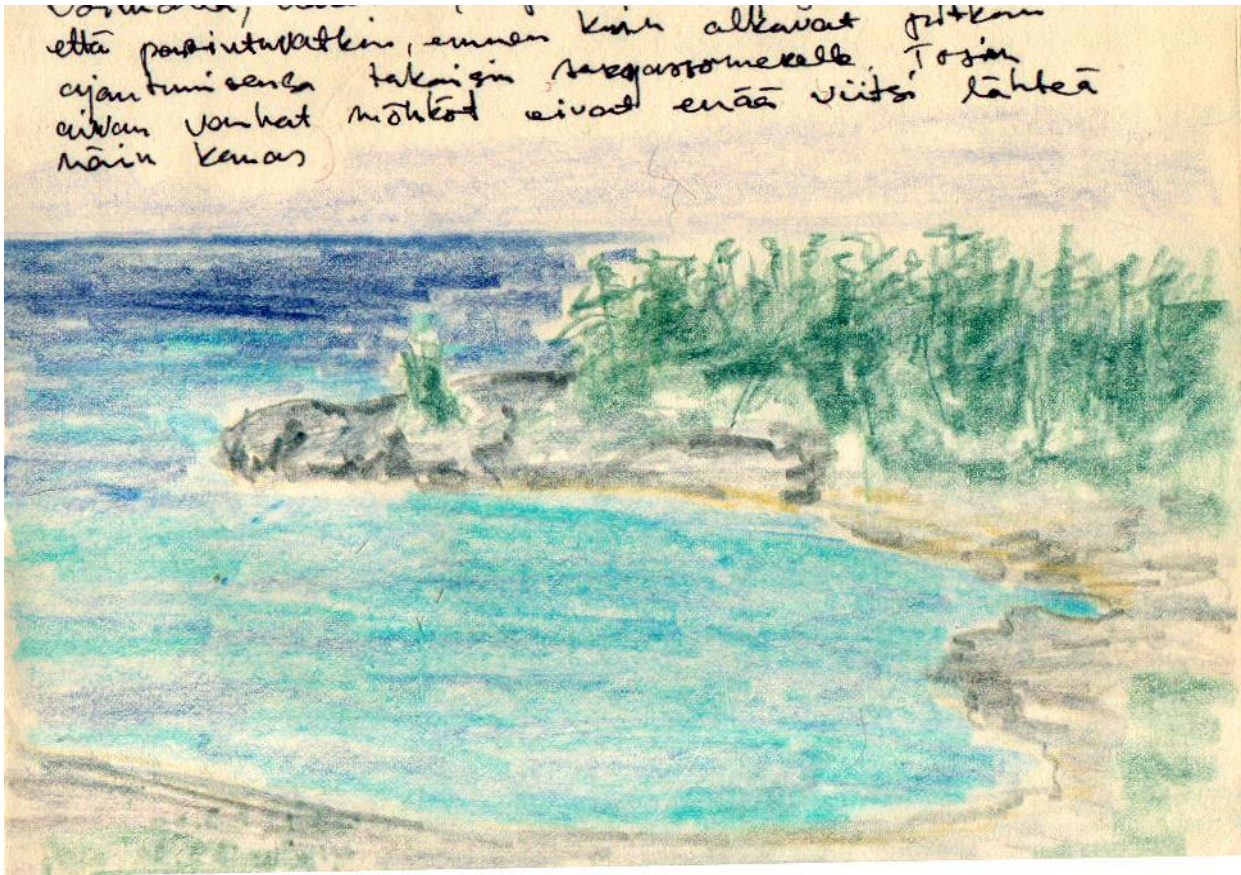 että ennen kuin alkavat pitkän
ajautumisensa takaisin sargassomerelle. Tosin
aivan vanhat möhköt eivät enää viitsi lähteä
näin